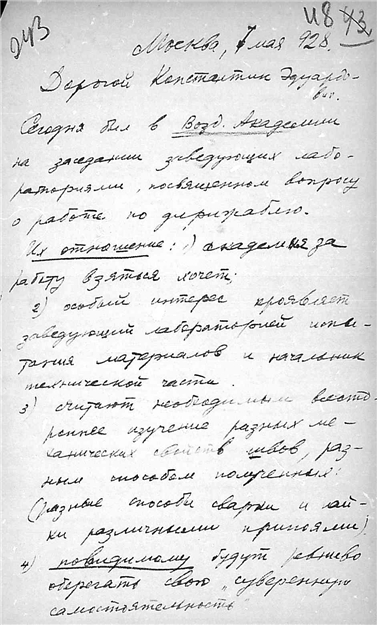 243
И8 43
Москва, 7 мая 928.
Дорогой Константин Эдуардо-
вич.
Сегодня был в Возд. Академии
на заседании заведующих лабо-
раториями, посвященном вопросу
о работе по дирижаблю.
Их отношение: 1) академия за
работу взяться хочет;
2) особый интерес проявляет
заведующий лабораторией испы-
тания материалов и начальник
технической части.
3) считают необходимым всесто-
роннее изучение разных ме-
ханических свойств швов, раз-
ным способом полученных:
(разные способы сварки и пай-
ки различными припоями)
4) повидимому будут ревниво
оберегать свою „суверенную
самостоятельность